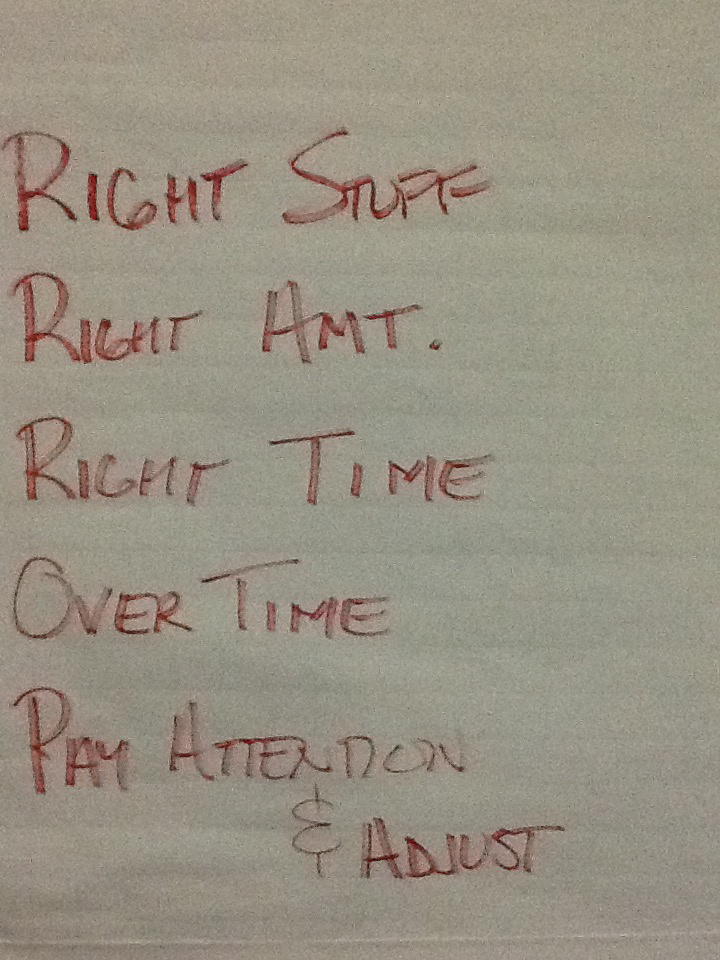 RIGHT STUFF
RIGHT AMT.
RIGHT TIME
OVER TIME
PAY ATTENTION
& ADJUST